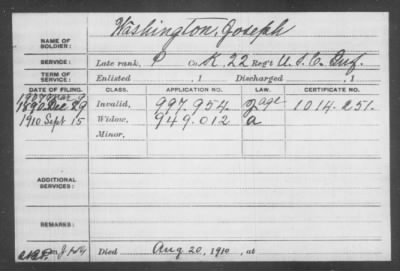 NAME OF SOLDIER: Washington, Joseph
SERVICE: Late rank, P Co. K, 22 Reg't U.S.C. Inf.
TERM OF SERVICE: Enlisted , 1 Discharged , 1
DATE OF FILING. CLASS. APPLICATION NO. LAW. CERTIFICATE NO.
1890 Dec 29 Invalid, 997.954 age 1014.251
1910 Sept 15 Widow, 949.012 a
Minor,
ADDITIONAL SERVICES:
REMARKS:
Died Aug 20, 1910, at